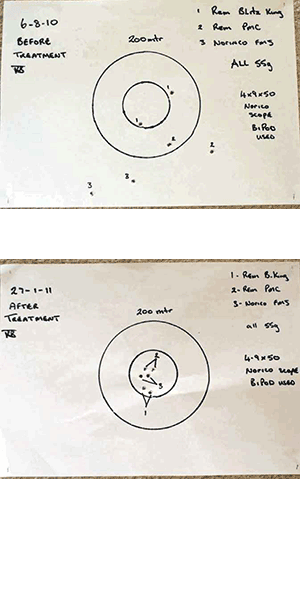 6-8-10
BEFORE
TREATMENT
200mtr
1 Rem Blitz King
2 Rem PMC
3 Norinco FMJ
ALL 55g
4x9x50
Norico
SCOPE
BiPOD
USED
1
2
2
3
3
27-1-11
AFTER
TREATMENT
200 mtr
1- Rem B.King
2- Rem PMC
3- Norico FMJ
all 55g
4-9x50
Norico SCOPE
BiPOD USED
2
3
1